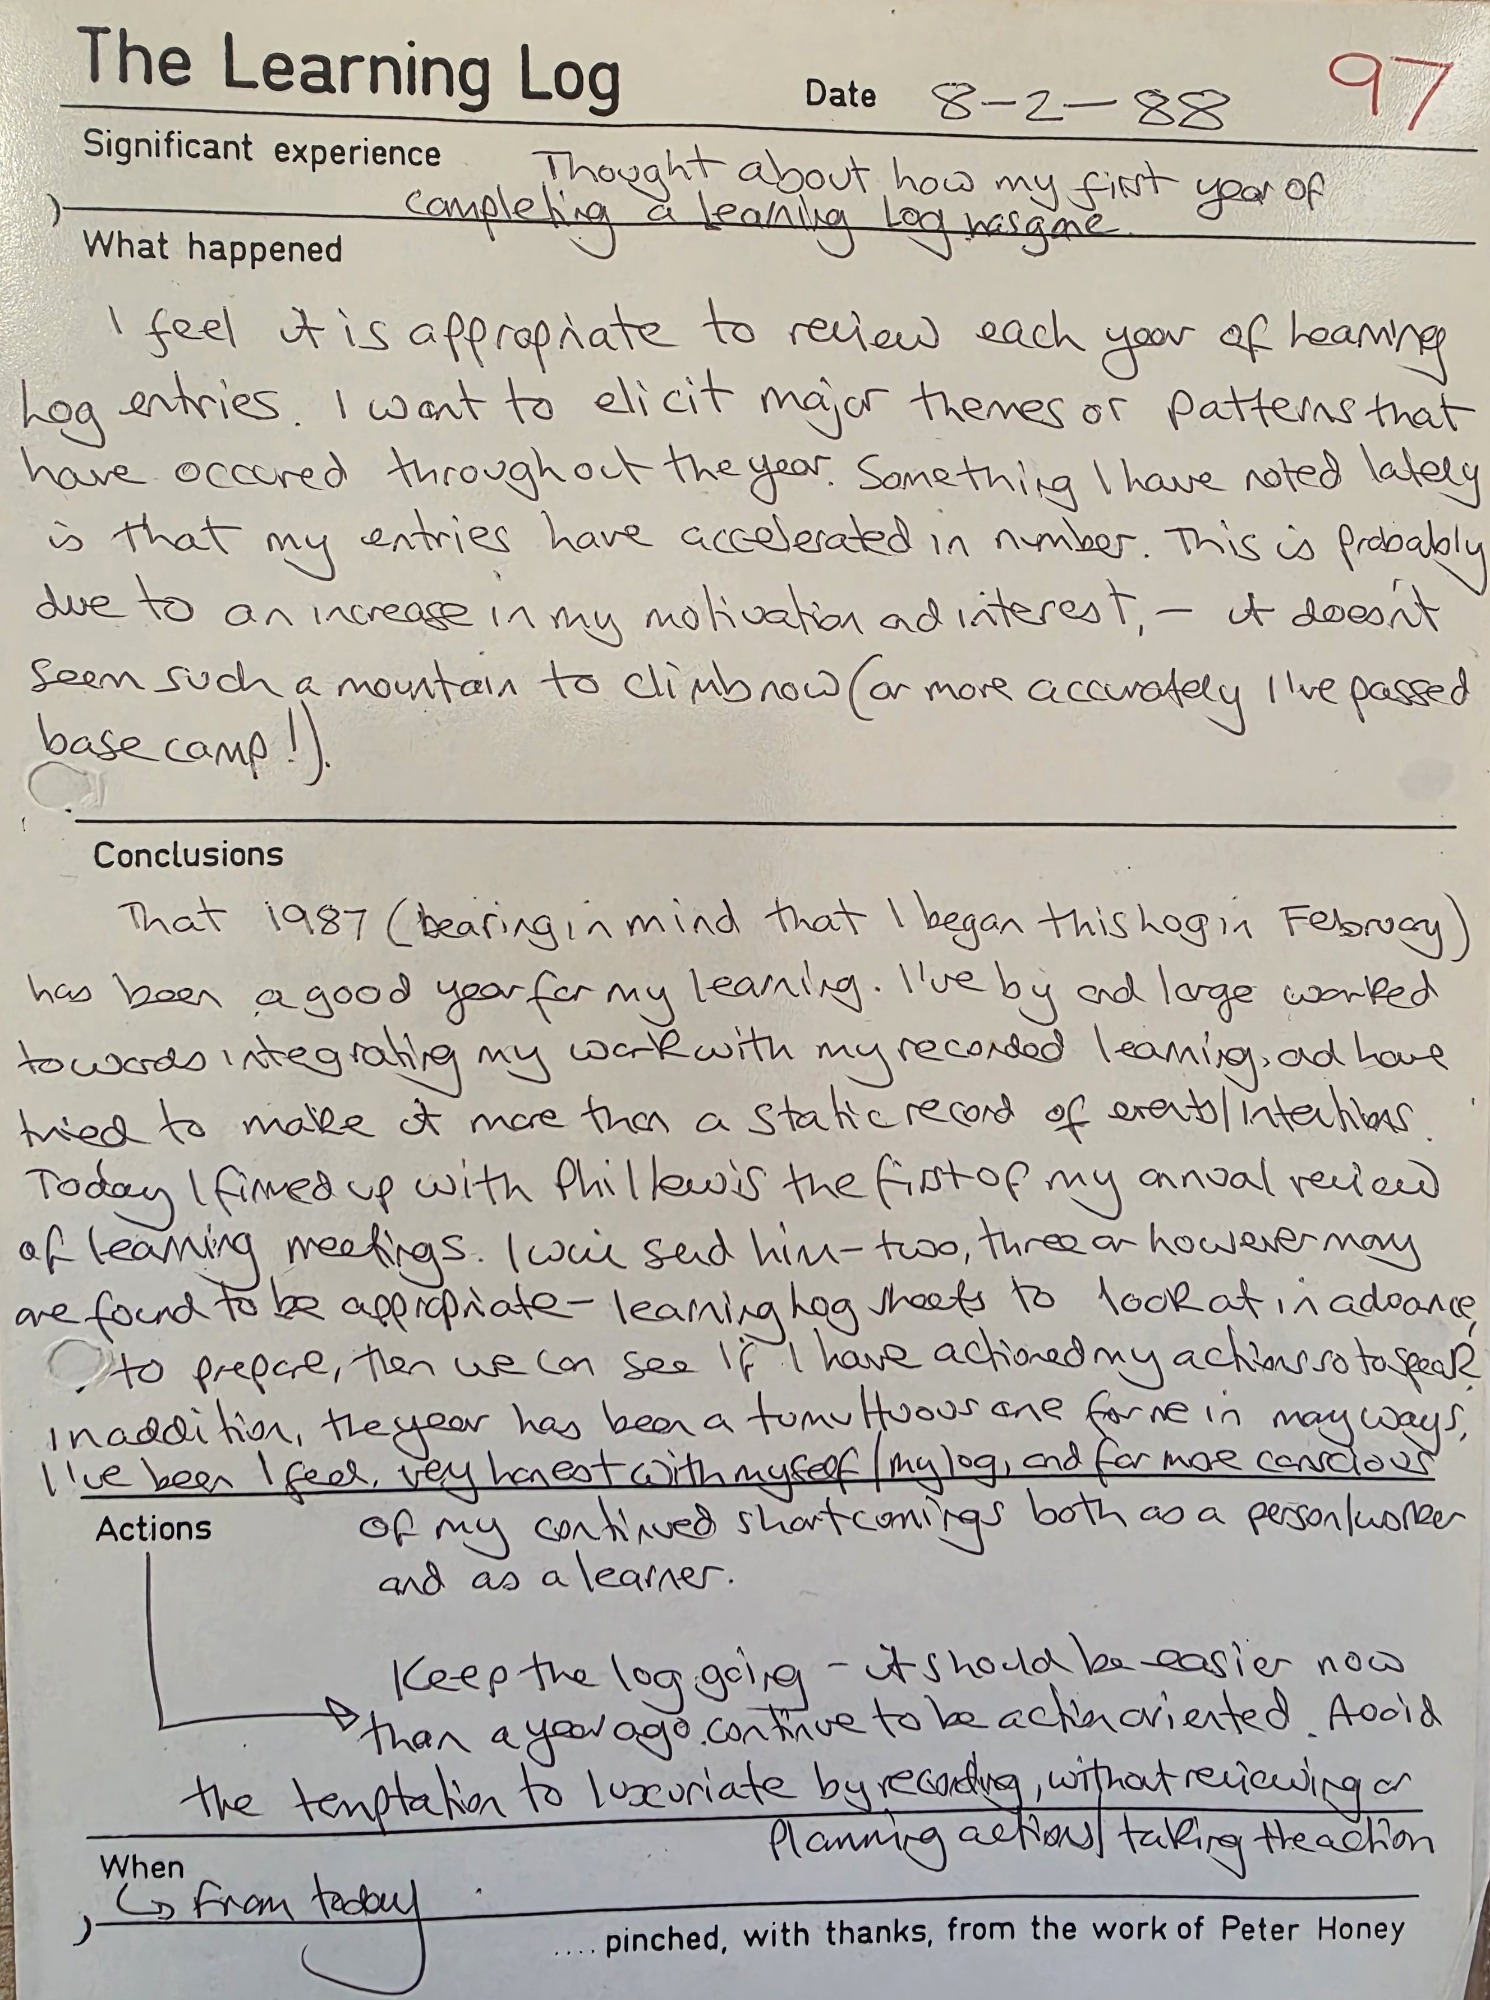 The Learning Log
Date 8-2-88 97
Significant experience Thought about how my first year of
completing a learning log has gone.
What happened
I feel it is appropriate to review each year of learning
log entries. I want to elicit major themes or patterns that
have occured throughout the year. Something I have noted lately
is that my entries have accelerated in number. This is probably
due to an increase in my motivation and interest, - it doesn't
seem such a mountain to climb now (or more accurately I've passed
base camp!).
Conclusions
That 1987 (bearing in mind that I began this log in February)
has been a good year for my learning. I've by and large worked
towards integrating my work with my recorded learning, and have
tried to make it more than a static record of events/intentions.
Today I firmed up with Phil Lewis the first of my annual review
of learning meetings. I will send him - two, three or however many
are found to be appropriate - learning log sheets to look at in advance,
to prepare, then we can see if I have actioned my actions so to speak.
In addition, the year has been a tumultuous one for me in many ways,
I've been I feel, very honest with myself/my log, and far more conscious
Actions of my continued shortcomings both as a person/worker
and as a learner.
Keep the log going - it should be easier now
than a year ago. continue to be action oriented. Avoid
the temptation to luxuriate by recording, without reviewing or
planning actions/taking the action
When
↳ From today
.... pinched, with thanks, from the work of Peter Honey